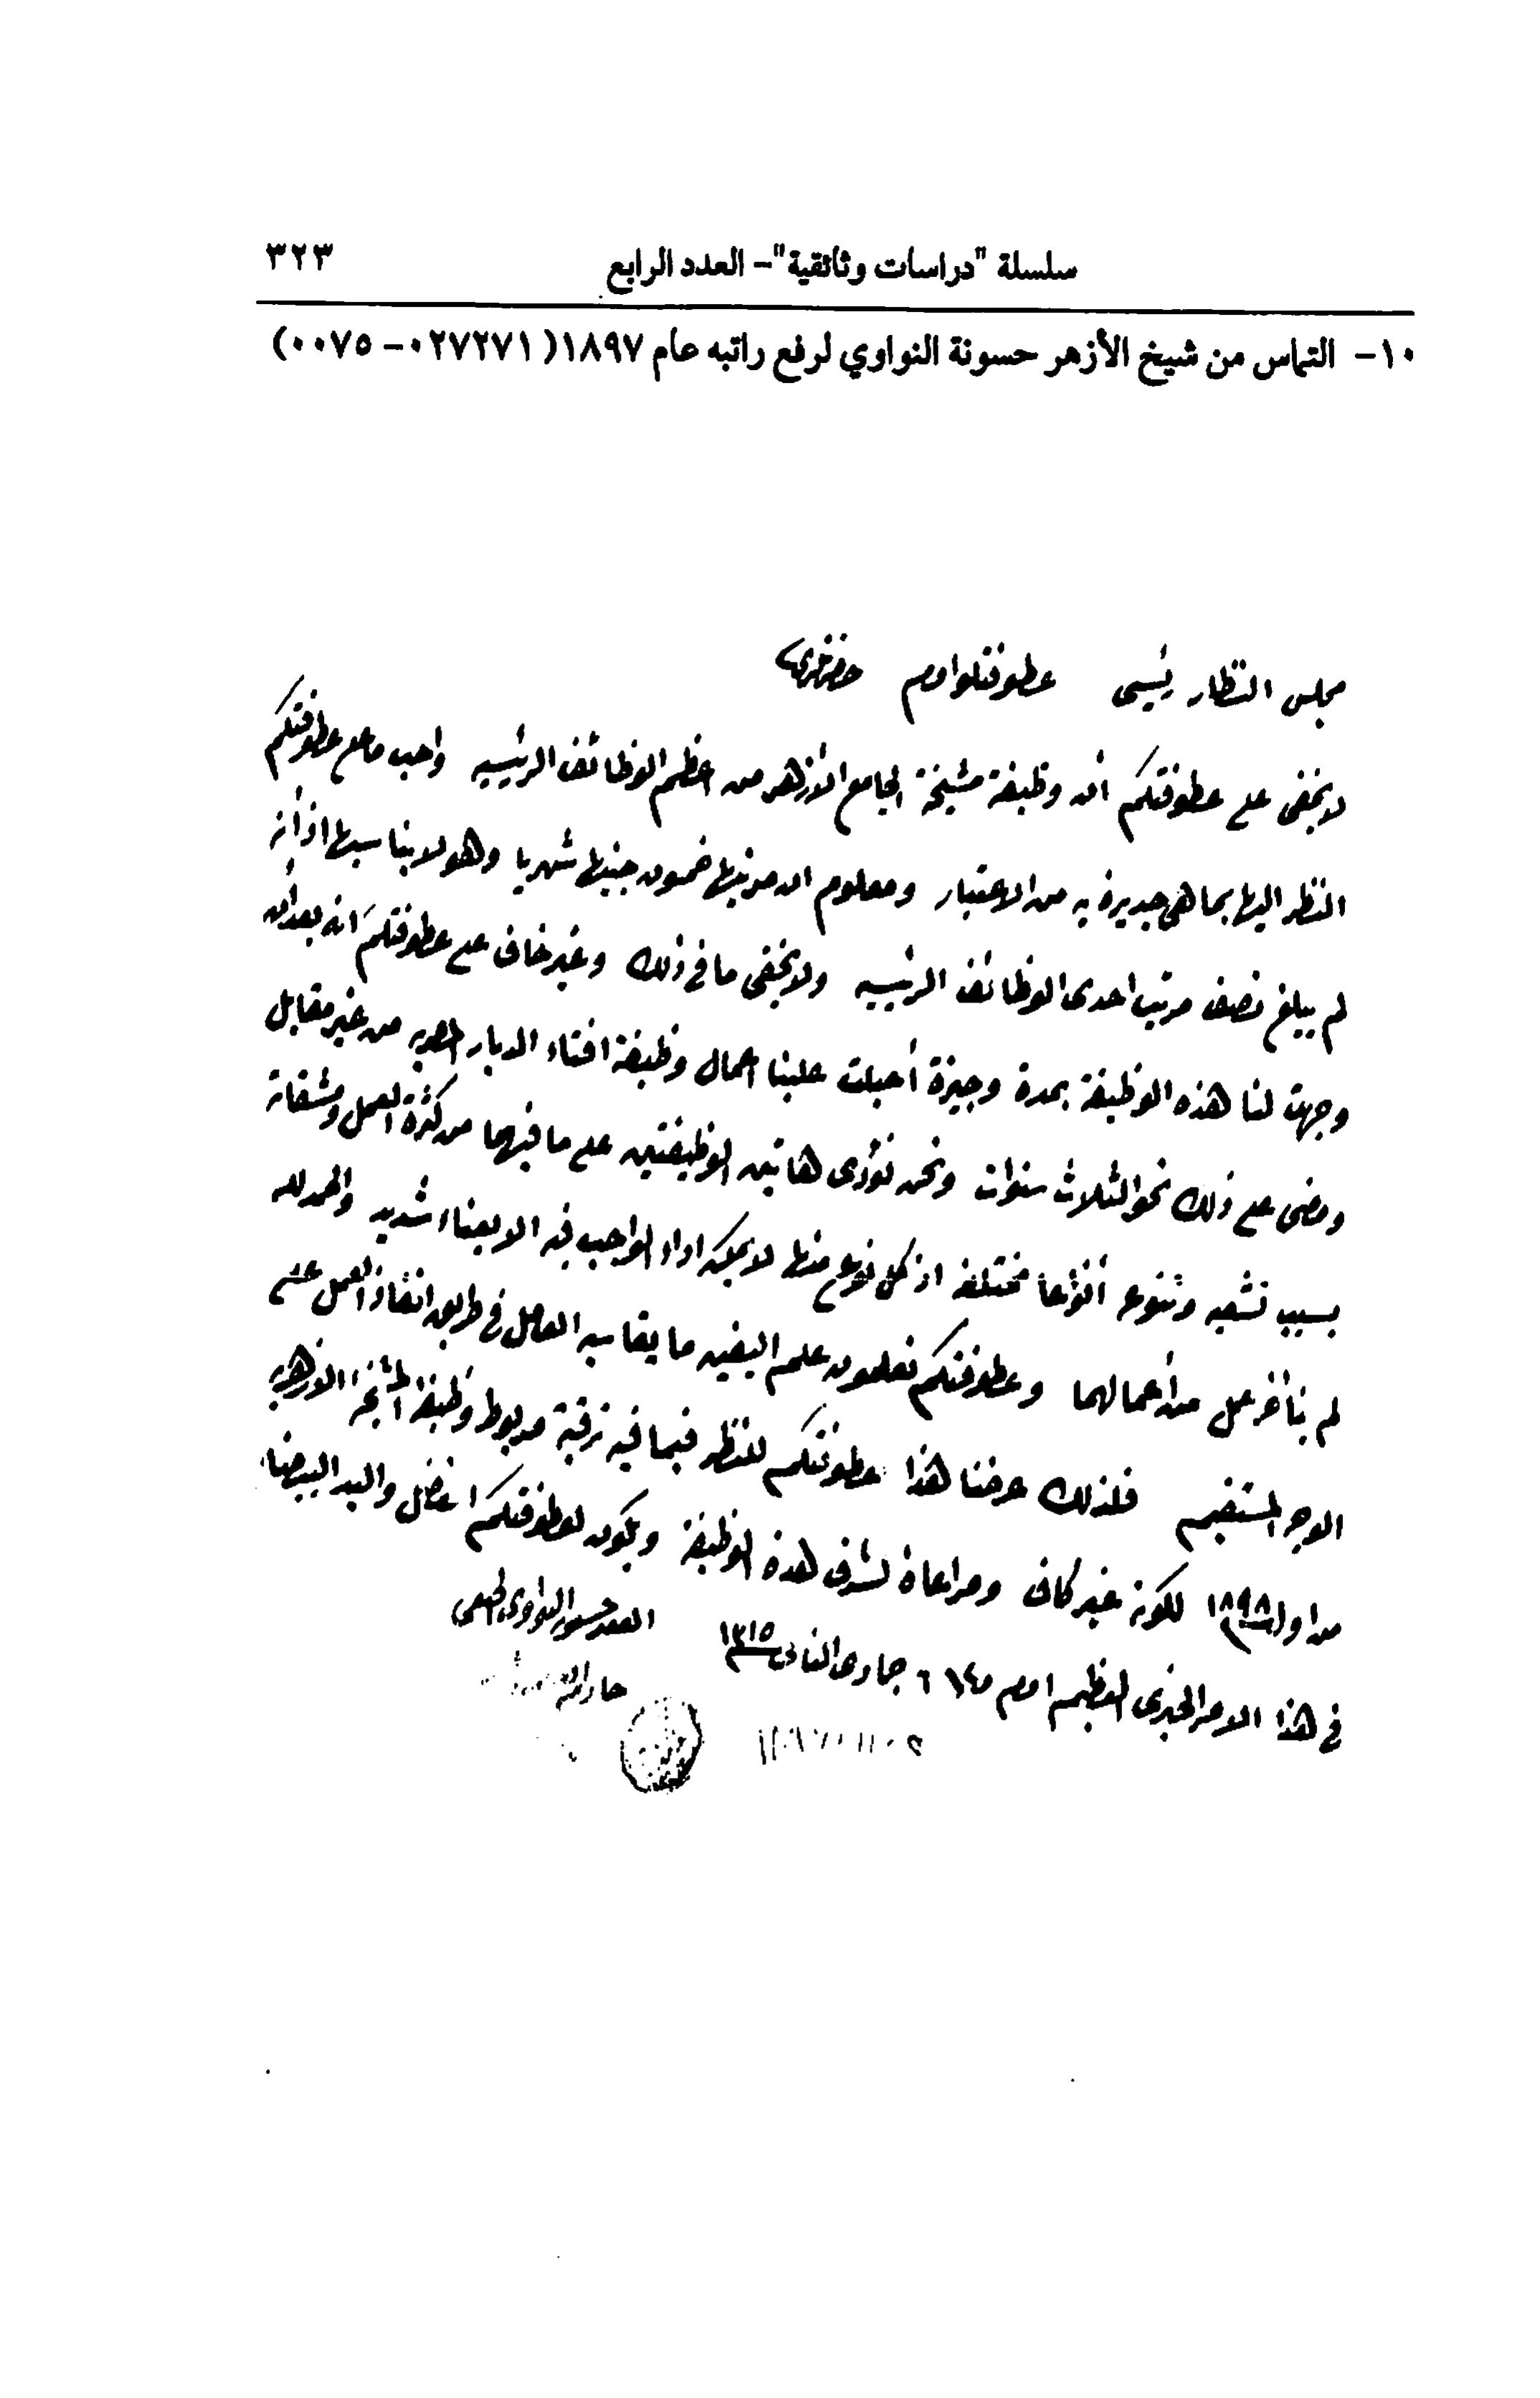 سلسلة "دراسات وثائقية"- العدد الرابع ٣٢٣
١٠- التماس من شيخ الأزهر حسونة النواوي لرفع راتبه عام ١٨٩٧ (٠٢٧٢٧١-٠٠٧٥)
مجلس النظار رئيسى عطوفتلو افندم حضرتلرى
لا يخفى على عطوفتكم ان وظيفة مشيخة الجامع الأزهر من اعظم الوظائف الرئيسيه واحب ما على عطوفتكم
النظر اليها بما هى جديرة به من الاعتبار ومعلوم ان مرتبها خمسون جنيها شهريا وهو لا يناسبها اذ أنه
لم يبلغ نصف مرتب احدى الوظائف الرئيسيه ولا يخفى ما فى ذلك وغير خاف على عطوفتكم انه بعد أن
وجهت لنا هذه الوظيفة بمدة وجيزة أحيلت علينا اعمال وظيفة افتاء الديار المصريه من غير مقابل
ومضى على ذلك نحو الثلاث سنوات ونحن نؤدى هاتين الوظيفتين على ما فيهما من كثرة العمل ومشقاته
بسبب تشعبه وتنوعه أنواعا مختلفه اذ كل نوع منها لا يمكن اداء الواجب فيه الا بعناء شديد والحمد لله
لم يتأخر عمل من أعمالهما وعطوفتكم تعلمون علم اليقين ما يقاسيه العامل فى طريق انفاذ العمل على
الوجه المستقيم فلذلك عرضنا هذا لعطوفتكم للنظر فيما فيه ترقية مربوط وظيفة المشيخة الازهريه
من اول سنة ١٨٩٨ لكونه غير كاف ومراعاة لشرف هذه الوظيفة ويكون لعطوفتكم الفضل واليد البيضاء
فى هذا الامر الخيرى العظيم افندم ٦ جمادى الثانى سنة ١٣١٥ حسونه النواوى الحنفى